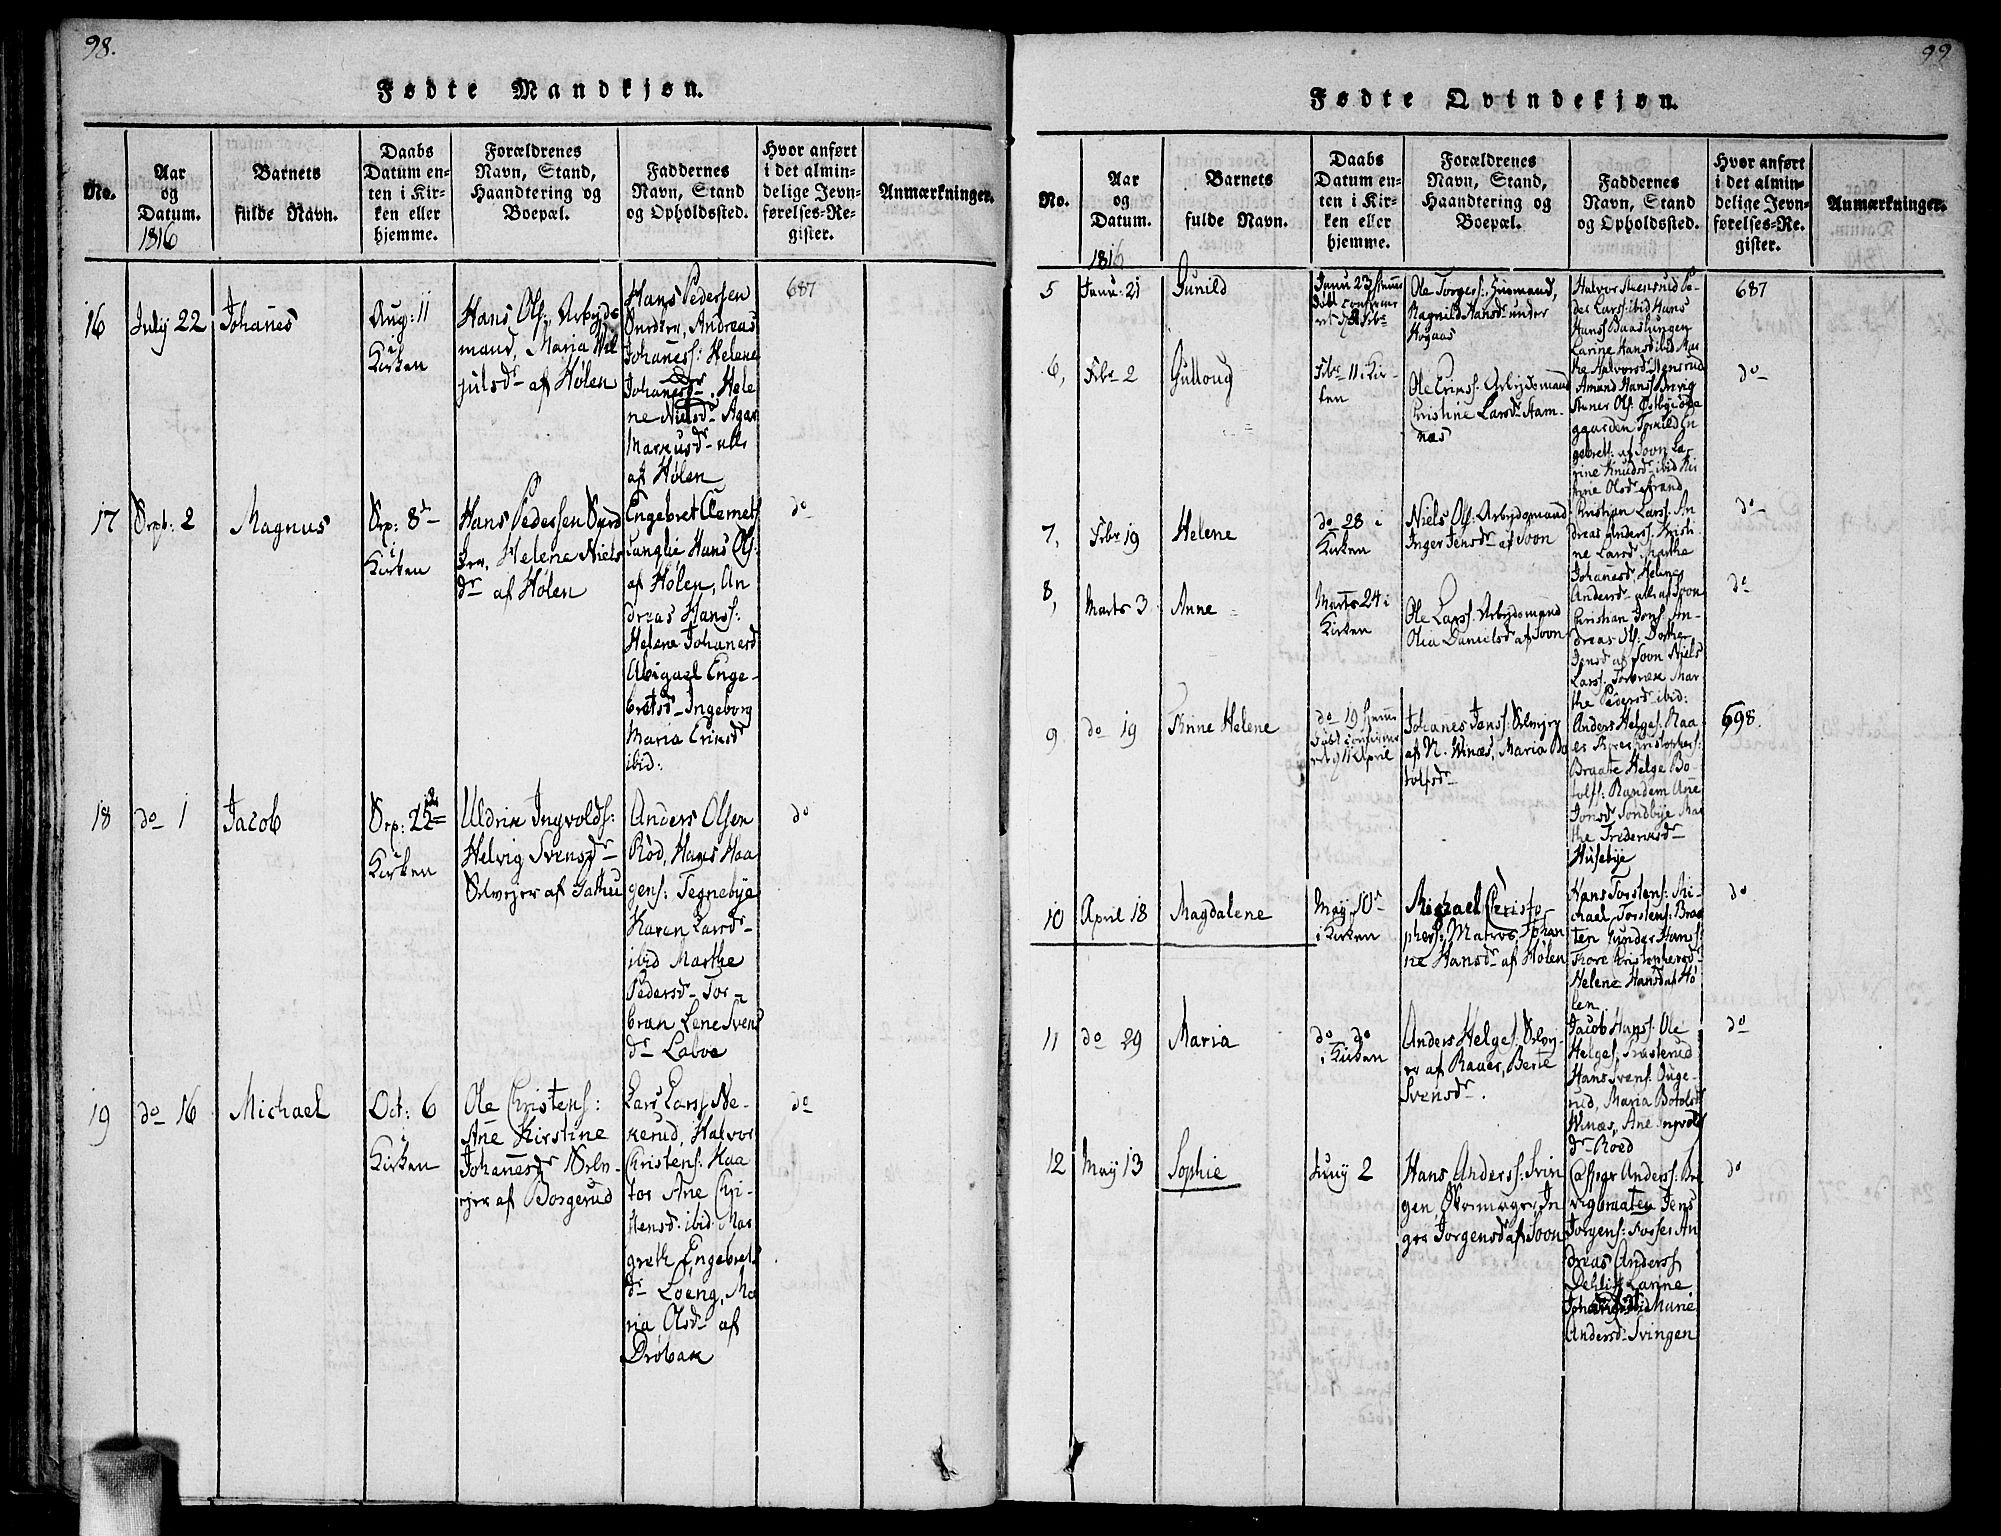 98.
Fødte Mandkjøn.
No.
Aar
og
Datum.
1816
Barnets
fulde Navn.
Daabs
Datum en-
ten i Kir-
ken eller
hjemme.
Forældrenes
Navn, Stand,
Haandtering og
Boepæl.
Faddernes
Navn, Stand
og Opholdssted.
Hvor anført
i det almin-
delige Jevn-
førelses-Re-
gister.
Anmærkninger.
16
July 22
Johanes
Aug: 11
Kirken
Hans Ols: Arbejds
mand, Maria
af Hølen
Hans Pedersen
Andreas
Johaness: Helene
Johanesdr. Hele
ne Nielsdr Agar
Markusdr alle
af Hølen
687
17
Sepb: 2
Magnus
Sep: 8de
i
Kirken
Hans Pedersen
Helene Niels
dr af Hølen
Engebret Clemets
Langlie Hans Ols:
af Hølen, An
dreas Hanss:
Helene Johanesd
Abigael Enge-
bretsd Ingeborg
Maria Eriksd
ibid:
do
18
do 1
Jacob
Sep: 22
Kirken
Uldrik Ingvolds:
Helvig Svensdr
Selvejer af
Anders Olsen
Rød, Hans Haa
gens: Tegnebye
Karen Larsdr
ibid Marthe
Pedersdr Tor-
bræn Lene Svens
dr Labo
do
19
do 16
Michael
Oct: 6
Kirken
Ole Christens:
Ane Kirstine
Johanesdr Selv-
ejer af Borgerud
Lars Larss
kerud, Halvor
Christens: Haa
tor Ane Chri-
stensd: ibid: Mar
greth Engebrets
dr Løeng, Ma
ria Olsdr af
Drøbak
do
99
Fødte Qvindekjøn.
No.
Aar
og
Datum.
1816
Barnets
fulde Navn.
Daabs
Datum en-
ten i Kir-
ken eller
hjemme.
Forældrenes
Navn, Stand,
Haandtering og
Boepæl.
Faddernes
Navn, Stand
og Opholdssted.
Hvor anført
i det almin-
delige Jevn-
førelses-Re-
gister.
Anmærkninger.
5
Janu: 21
Gunild
Janu 23 hjemme
døbt confirme
ret
Ole Torgers: Huusmand,
Ragnild Hansdr under
Høgaas
Halvor Stensrud Pe-
der Larss: ibid Hans
Hanss
Larine Hansd ibid Mar
the Halvorsdr Stensrud
687
6,
Febr 2
Gulloug
Febr 11 i Kir-
ken
Ole Erikss: Arbejdsmand
Christine Larsdr Stam-
næs
Amund Hanss Brevig
Stener Ols: Østbye
gaarden Torkild In
gebrets: af Soon La-
rine Knudsdr ibid Kir
stine Olsdr Strand
do
7,
Febr 19
Helene
do 28 i
Kirken
Niels Ols: Arbejdsmand
Inger Jensdr af Soon
Kristian Larss: An
dreas Anderss: Kristi-
ne Larsd Marthe
Johanesd, Helene
Andersdr alle af Soon
do
8,
Marts 3
Anne
Marts 24 i
Kirken
Ole Larss: Arbejdsmand
Olia Danielsdr af Soon
Christian Jons: An-
dreas Ols: Dorthe
Jensd af Soon Niels
Larss: Torbræn Mar
the Pedersd ibid:
do
9
do 19
Anne Helene
do 19 hjemme
døbt confirme
ret 11 April
Johanes Jenss: Selvejer
af N. Winæs, Maria Bo
tolfsdr
Anders Helges: Raa
er
Braate Helge Bo-
tolfs: Randem Ane
Jonsd Sondbye Mar
the Frederiksd
Husebye
698.
10
April 18
Magdalene
May 10de
i Kirken
Michael Christo-
phers: Matros, Johan
ne Hansdr af Hølen
Hans Torstens: Mi-
chael Torstens: Braa
ten Gunder Hanss:
Thore Kristophersdr
Helene Hansd af Hø
len
do
11
do 29
Maria
do do
i Kirken
Anders Helges: Selvej-
er af Raaer, Berte
Svensdr.
Jacob Hanss: Ole
Helges: Prasterud
Hans Svens:
rud, Maria Botolsd
Winæs, Ane Ingvolds
dr Roed
do
12
May 13
Sophie
Juny 2
Hans Anderss: Svin
gen, In
ger Jørgensd af Soon
Casper Anderss: Bre
vigbraaten Jens
Jørgens: Fosser An
dreas Anderss
Dehli Larine
Marie
Andersdr Svingen
do